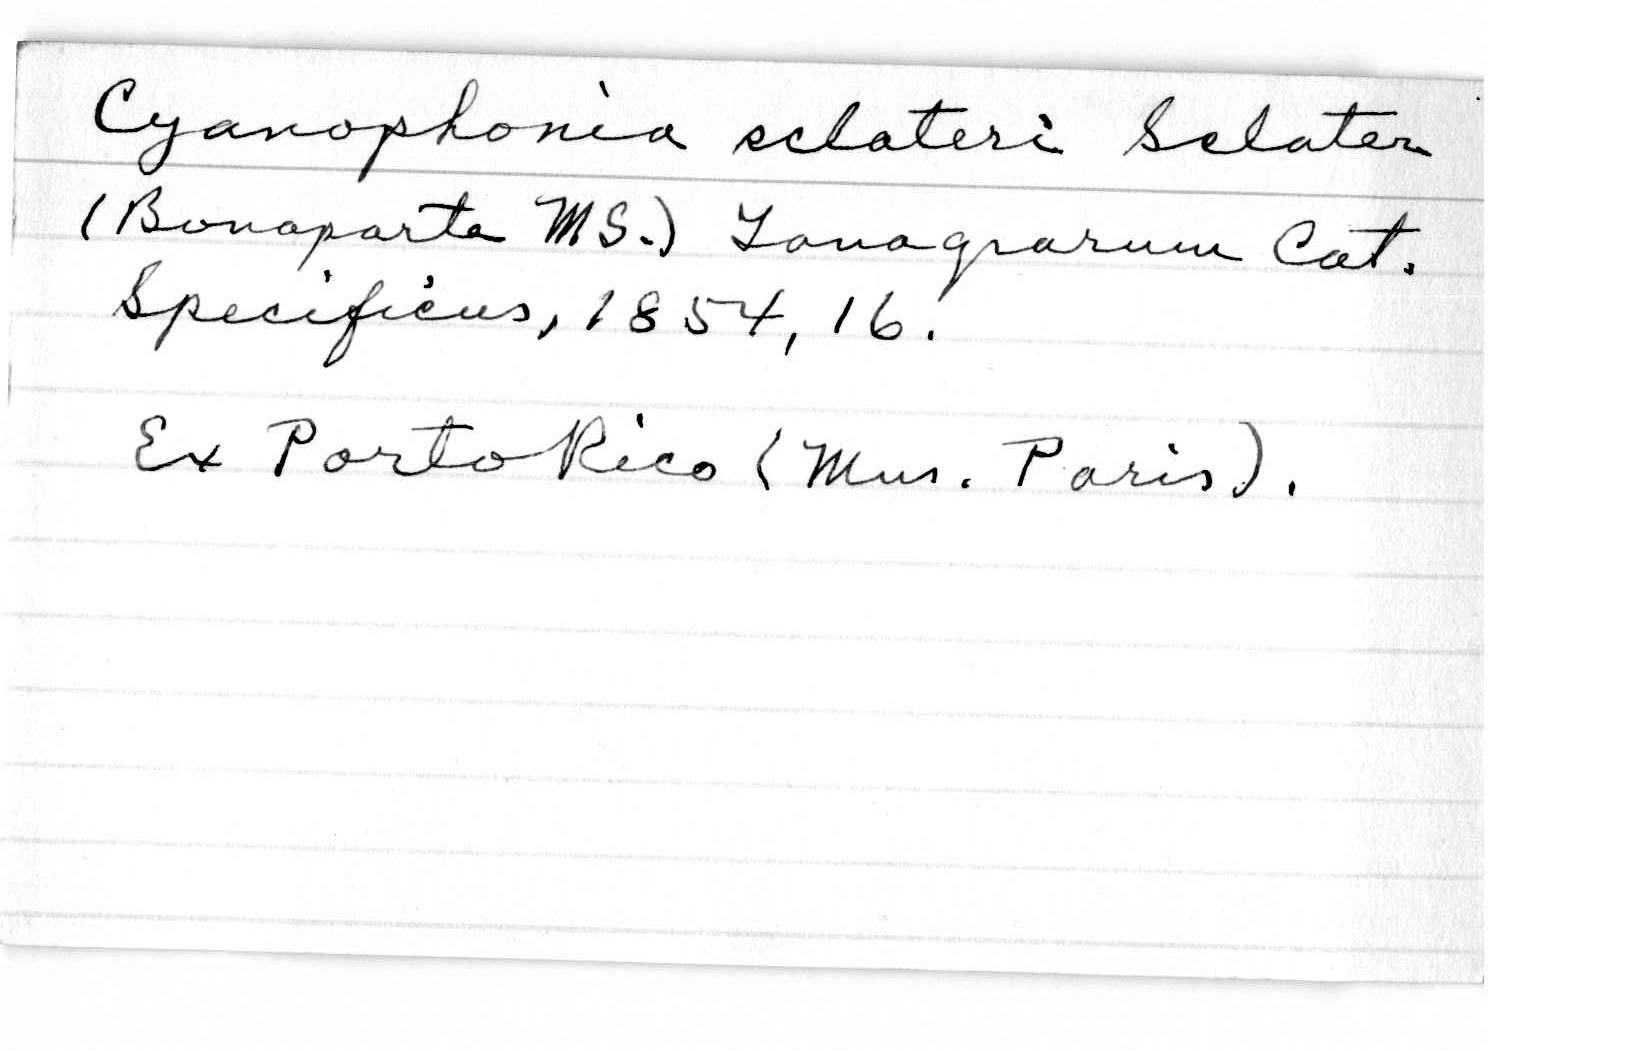 Cyanophonia sclateri Sclater
(Bonaparte MS.) Tanagrarum Cat.
Specificus, 1854, 16.
Ex Porto Rico (Mus. Paris).